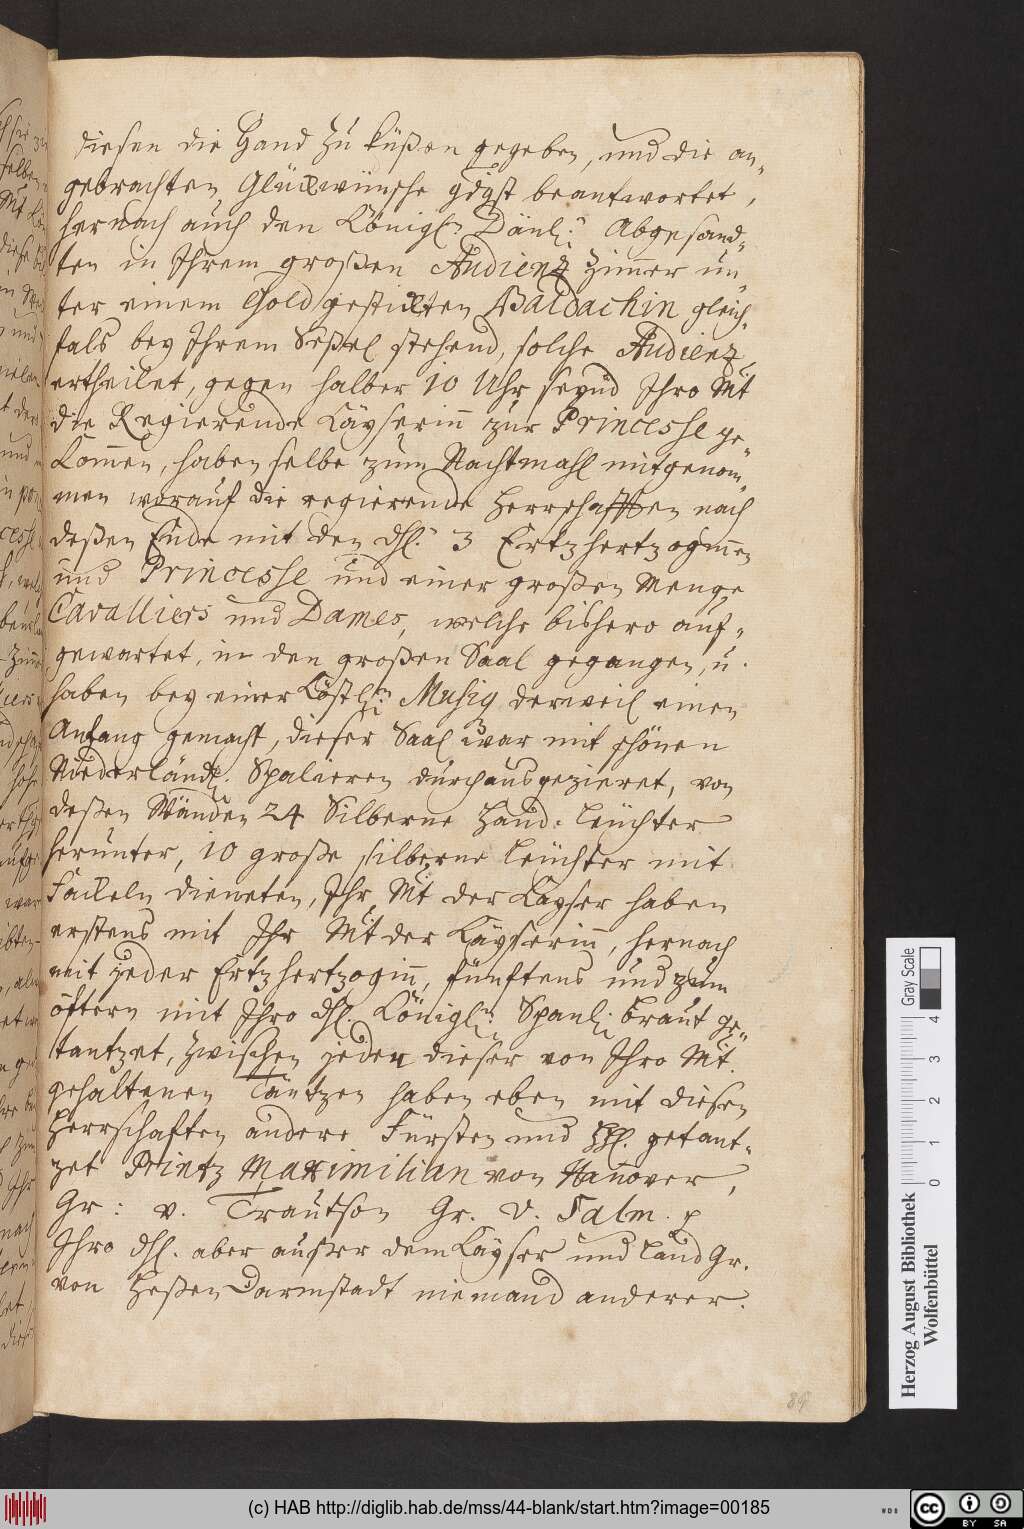 diesen die Hand zu küßen gegeben, und die an„
gebrachten Glückwünsche gdgst beantwortet,
hernach auch den Königl: Dänl: Abgesand„
ten in Ihrem großen Audienz Zimer un„
ter einem Gold gestickten Baldachin gleich„
fals bey Ihrem Seßel stehend, solche Audienz
ertheilet, gegen halber 10 Uhr seynd Ihro Mt
die Regierende Käyserin zur Princesse ge„
komen, haben selbe zum Nachtmahl mitgenom„
men worauf die regierende Herrschafften nach
deßen Ende mit den dhl. 3 Ertzhertzoginen
und Princesse und einer großen Menge
Cavalliers und Dames, welche bishero auf„
gewartet, in den großen Saal gegangen, u.
haben bey einer Köstl: Musiq derweil einen
Anfang gemacht, dieser Saal war mit schönen
Niederländl. Spalieren durchausgezieret, von
deßen Wänden 24 Silberne Hand-leüchter
herunter, 10 große silberne leüchter mit
Fackeln dieneten, Ihr Mt der Kayser haben
erstens mit Ihr Mt der Käyserin, hernach
mit jeder Ertzhertzogin, fünftens und zum
öftern mit Ihro dhl. Königl: Spanl: Braut ge„
tantzet, zwischen jeden dieser von Ihro Mt.
gehaltenen Täntzen haben eben mit diesen
Herrschaften andere Fürsten und getant„
zet Printz Maximilian von Hanover,
Gr: v. Trautson Gr. v. Salm. p
Ihro dhl. aber außer dem Käyser und land Gr.
von Heßen Darmstadt niemand anderer.
89
Herzog August Bibliothek
Wolfenbüttel
Gray Scale
0 1 2 3 4
(c) HAB http://diglib.hab.de/mss/44-blank/start.htm?image=00185
WDB
cc BY SA